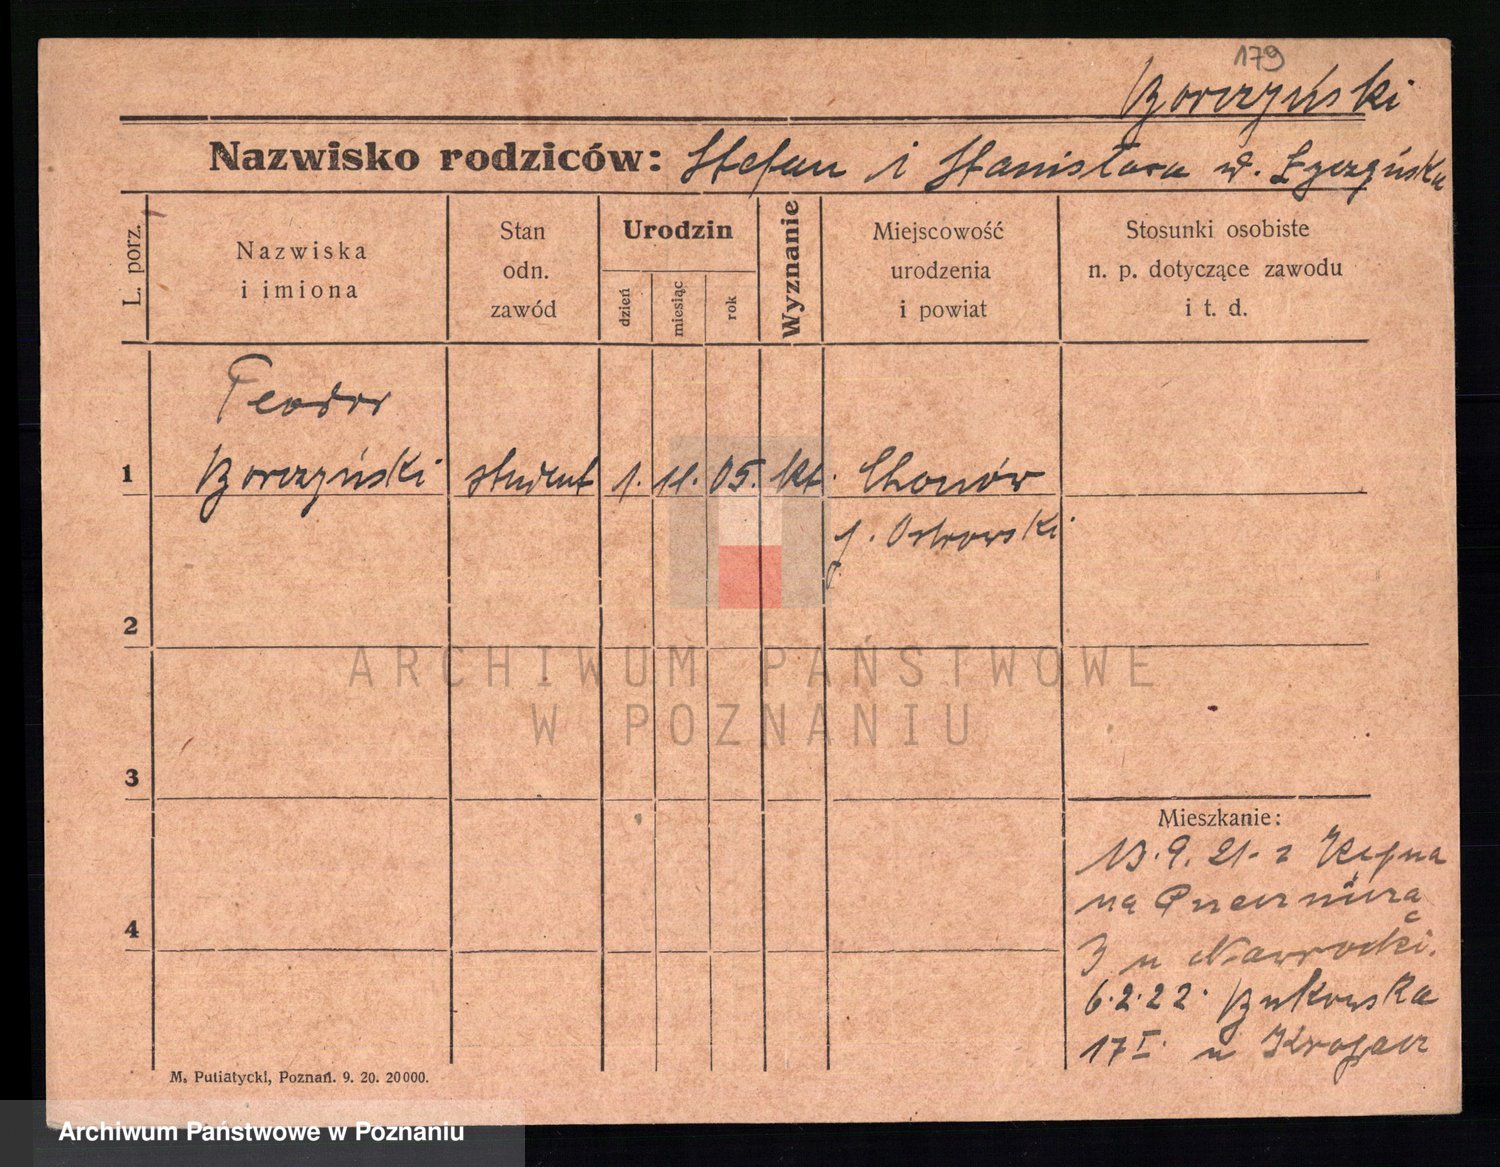 179
Borczyński
Nazwisko rodziców: Stefan i Stanisława d. Łyczyńska
L. porz.
Nazwiska
i imiona
Stan
odn.
zawód
Urodzin
dzień
miesiąc
rok
Wyznanie
Miejscowość
urodzenia
i powiat
Stosunki osobiste
n. p. dotyczące zawodu
i t. d.
Teodor
1 Borczyński student 1. 11. 05. kt.
p. Ostrowski
2
3
4
Mieszkanie:
13.9.21. z Kępna
na
3 u Nawrocki.
6.2.22. Bukowska
17 I. u
M. Putiatycki, Poznań. 9. 20. 20000.
ARCHIWUM PAŃSTWOWE
W POZNANIU
Archiwum Państwowe w Poznaniu